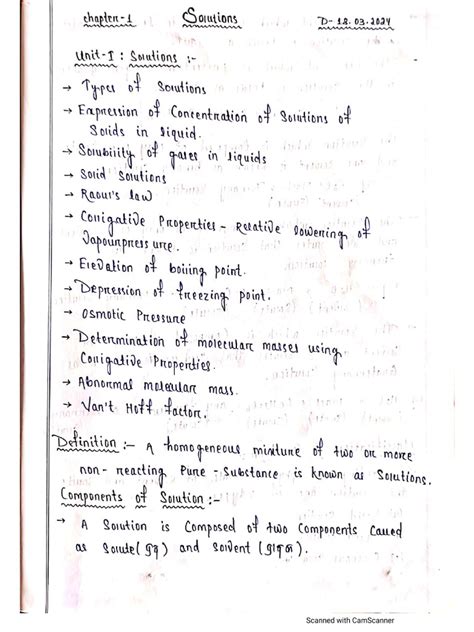 chapter-1 Solutions D- 18.03.2024
Unit-I : Solutions :-
→ Types of Solutions
→ Expression of Concentration of Solutions of
Solids in liquid.
→ Solubility of gases in liquids
→ Solid Solutions
→ Raoul's law
→ Colligative Properties - Relative Lowering of
Vapourpressure.
→ Elevation of boiling point.
→ Depression of freezing point.
→ Osmotic Pressure
→ Determination of molecular masses using
Colligative Properties.
→ Abnormal molecular mass.
→ Van't Hoff factor.
Definition :- A homogeneous mixture of two or more
non-reacting Pure-Substance is known as Solutions.
Components of Solution :-
→ A Solution is Composed of two Components Called
as Solute( ) and Solvent ( ).
Scanned with CamScanner